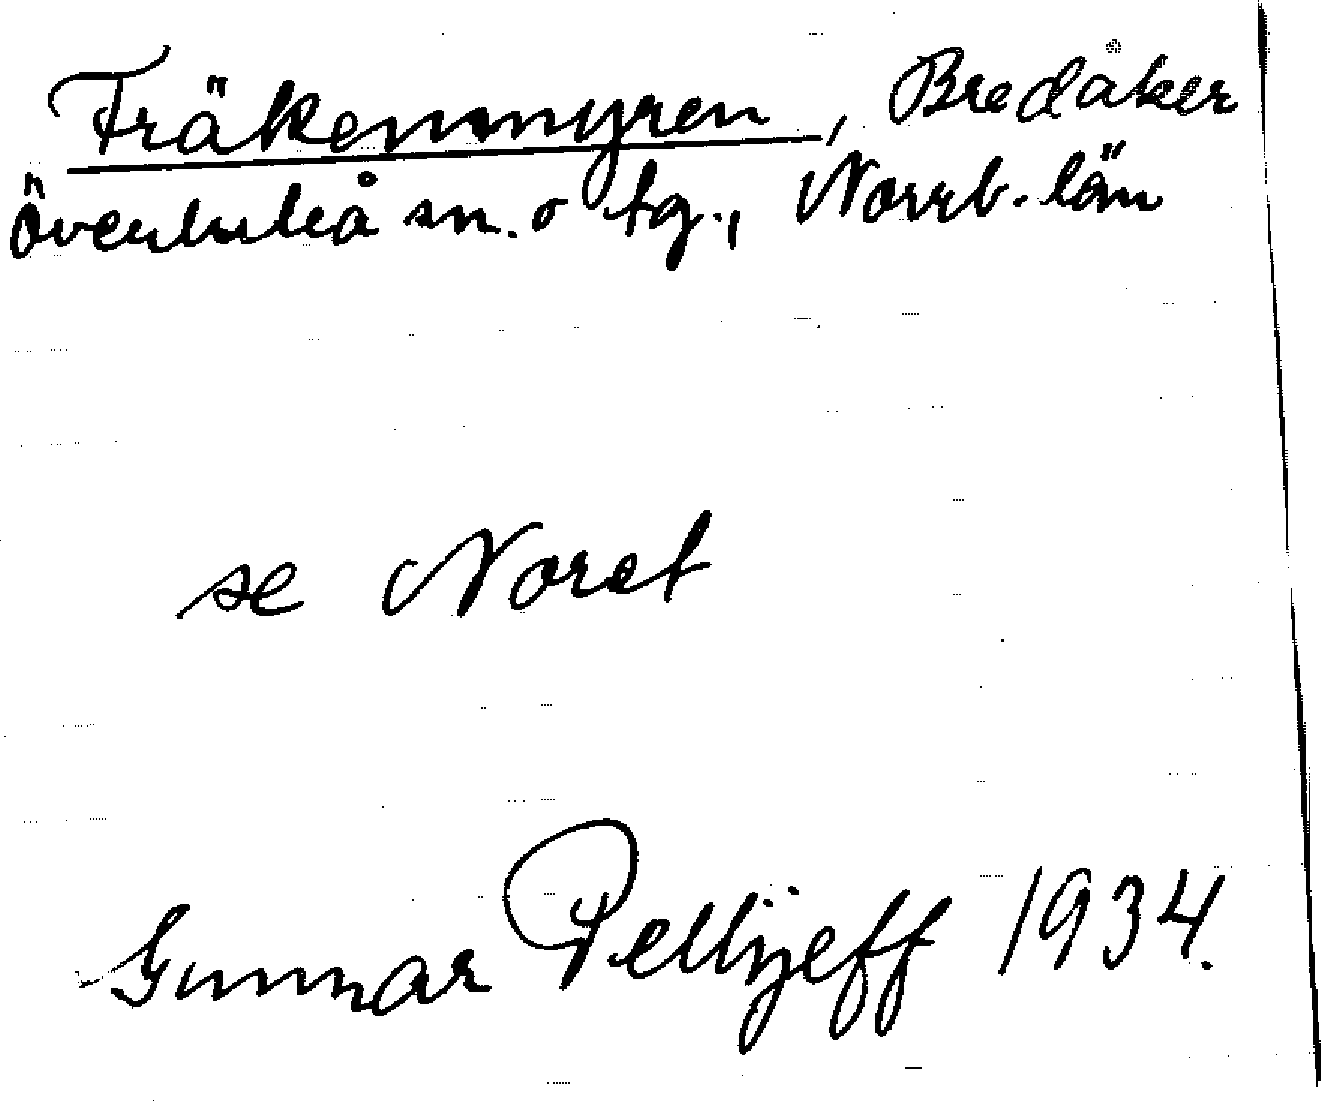 Fräkenmyren, Bredåker
Överluleå sn. o tg., Norrb. län
se Noret
Gunnar Pellijeff 1934.